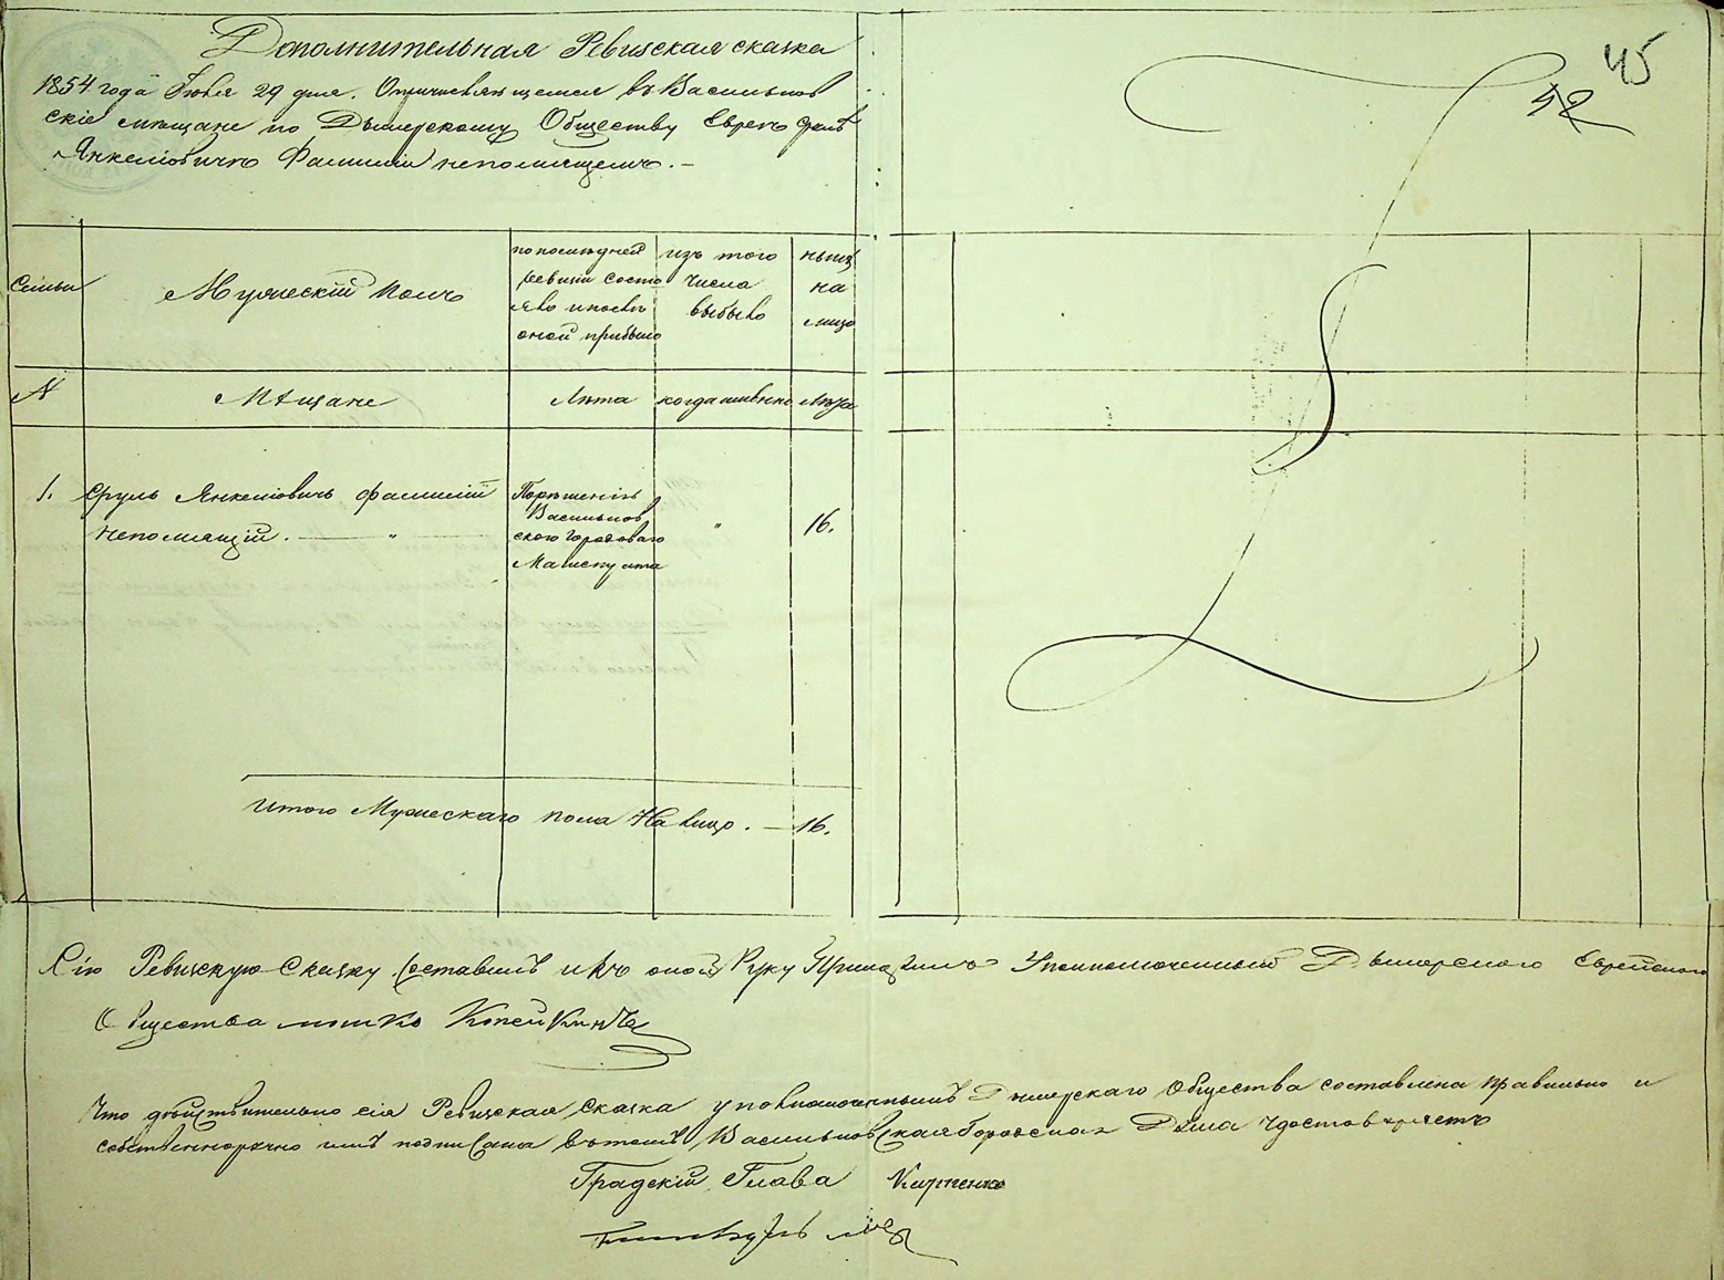 Дополнительная Ревизская сказка
45
42
1854 года Июля 29 дня. въ Васильков
скіе мещане по Дымерскому Обществу Евреѣ Сруль
Янкеліовичъ Фамиліи непомнящемъ. —
Семьи
Мужескій полъ
по последней
ревизіи состо
яло и после
оной прибыло
изъ того
числа
выбыло
нынѣ
на
лицо
N
Мѣщане
Лѣта
когда именно
Лѣта
1. Сруль Янкеліовичъ фамиліи
непомнящій. — "
По решенію
Васильков
ского Городоваго
Магистрата
"
16.
Итого Мужескаго пола На лицо. — 16.
Сію Ревизскую Сказку составилъ и къ оной Руку Приложилъ Уполномоченный Дымерского Еврейского
Общества мошко
Что действительно сія Ревизская Сказка уполномоченнымъ Дымерскаго Общества составлена правильно и
собственноручно имъ подписана въ томъ Васильковская Городская Дума удостоверяетъ
Градскій Глава